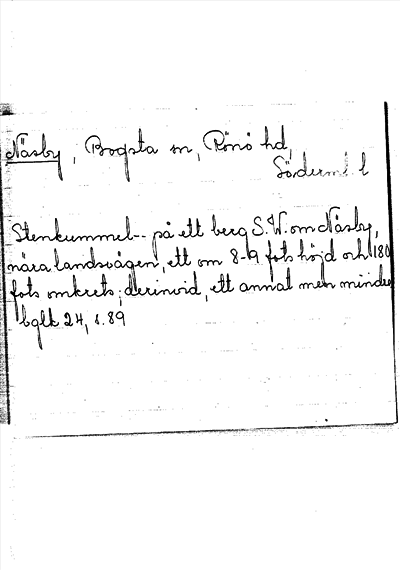 Näsby, Bogsta sn, Rönö hd,
Söderml. l
Stenkummel-- på ett berg S.W. om Näsby,
nära landsvägen, ett om 8-9 fots höjd och 180
fots omkrets; derinvid, ett annat men mindre
bglk 24, s. 89